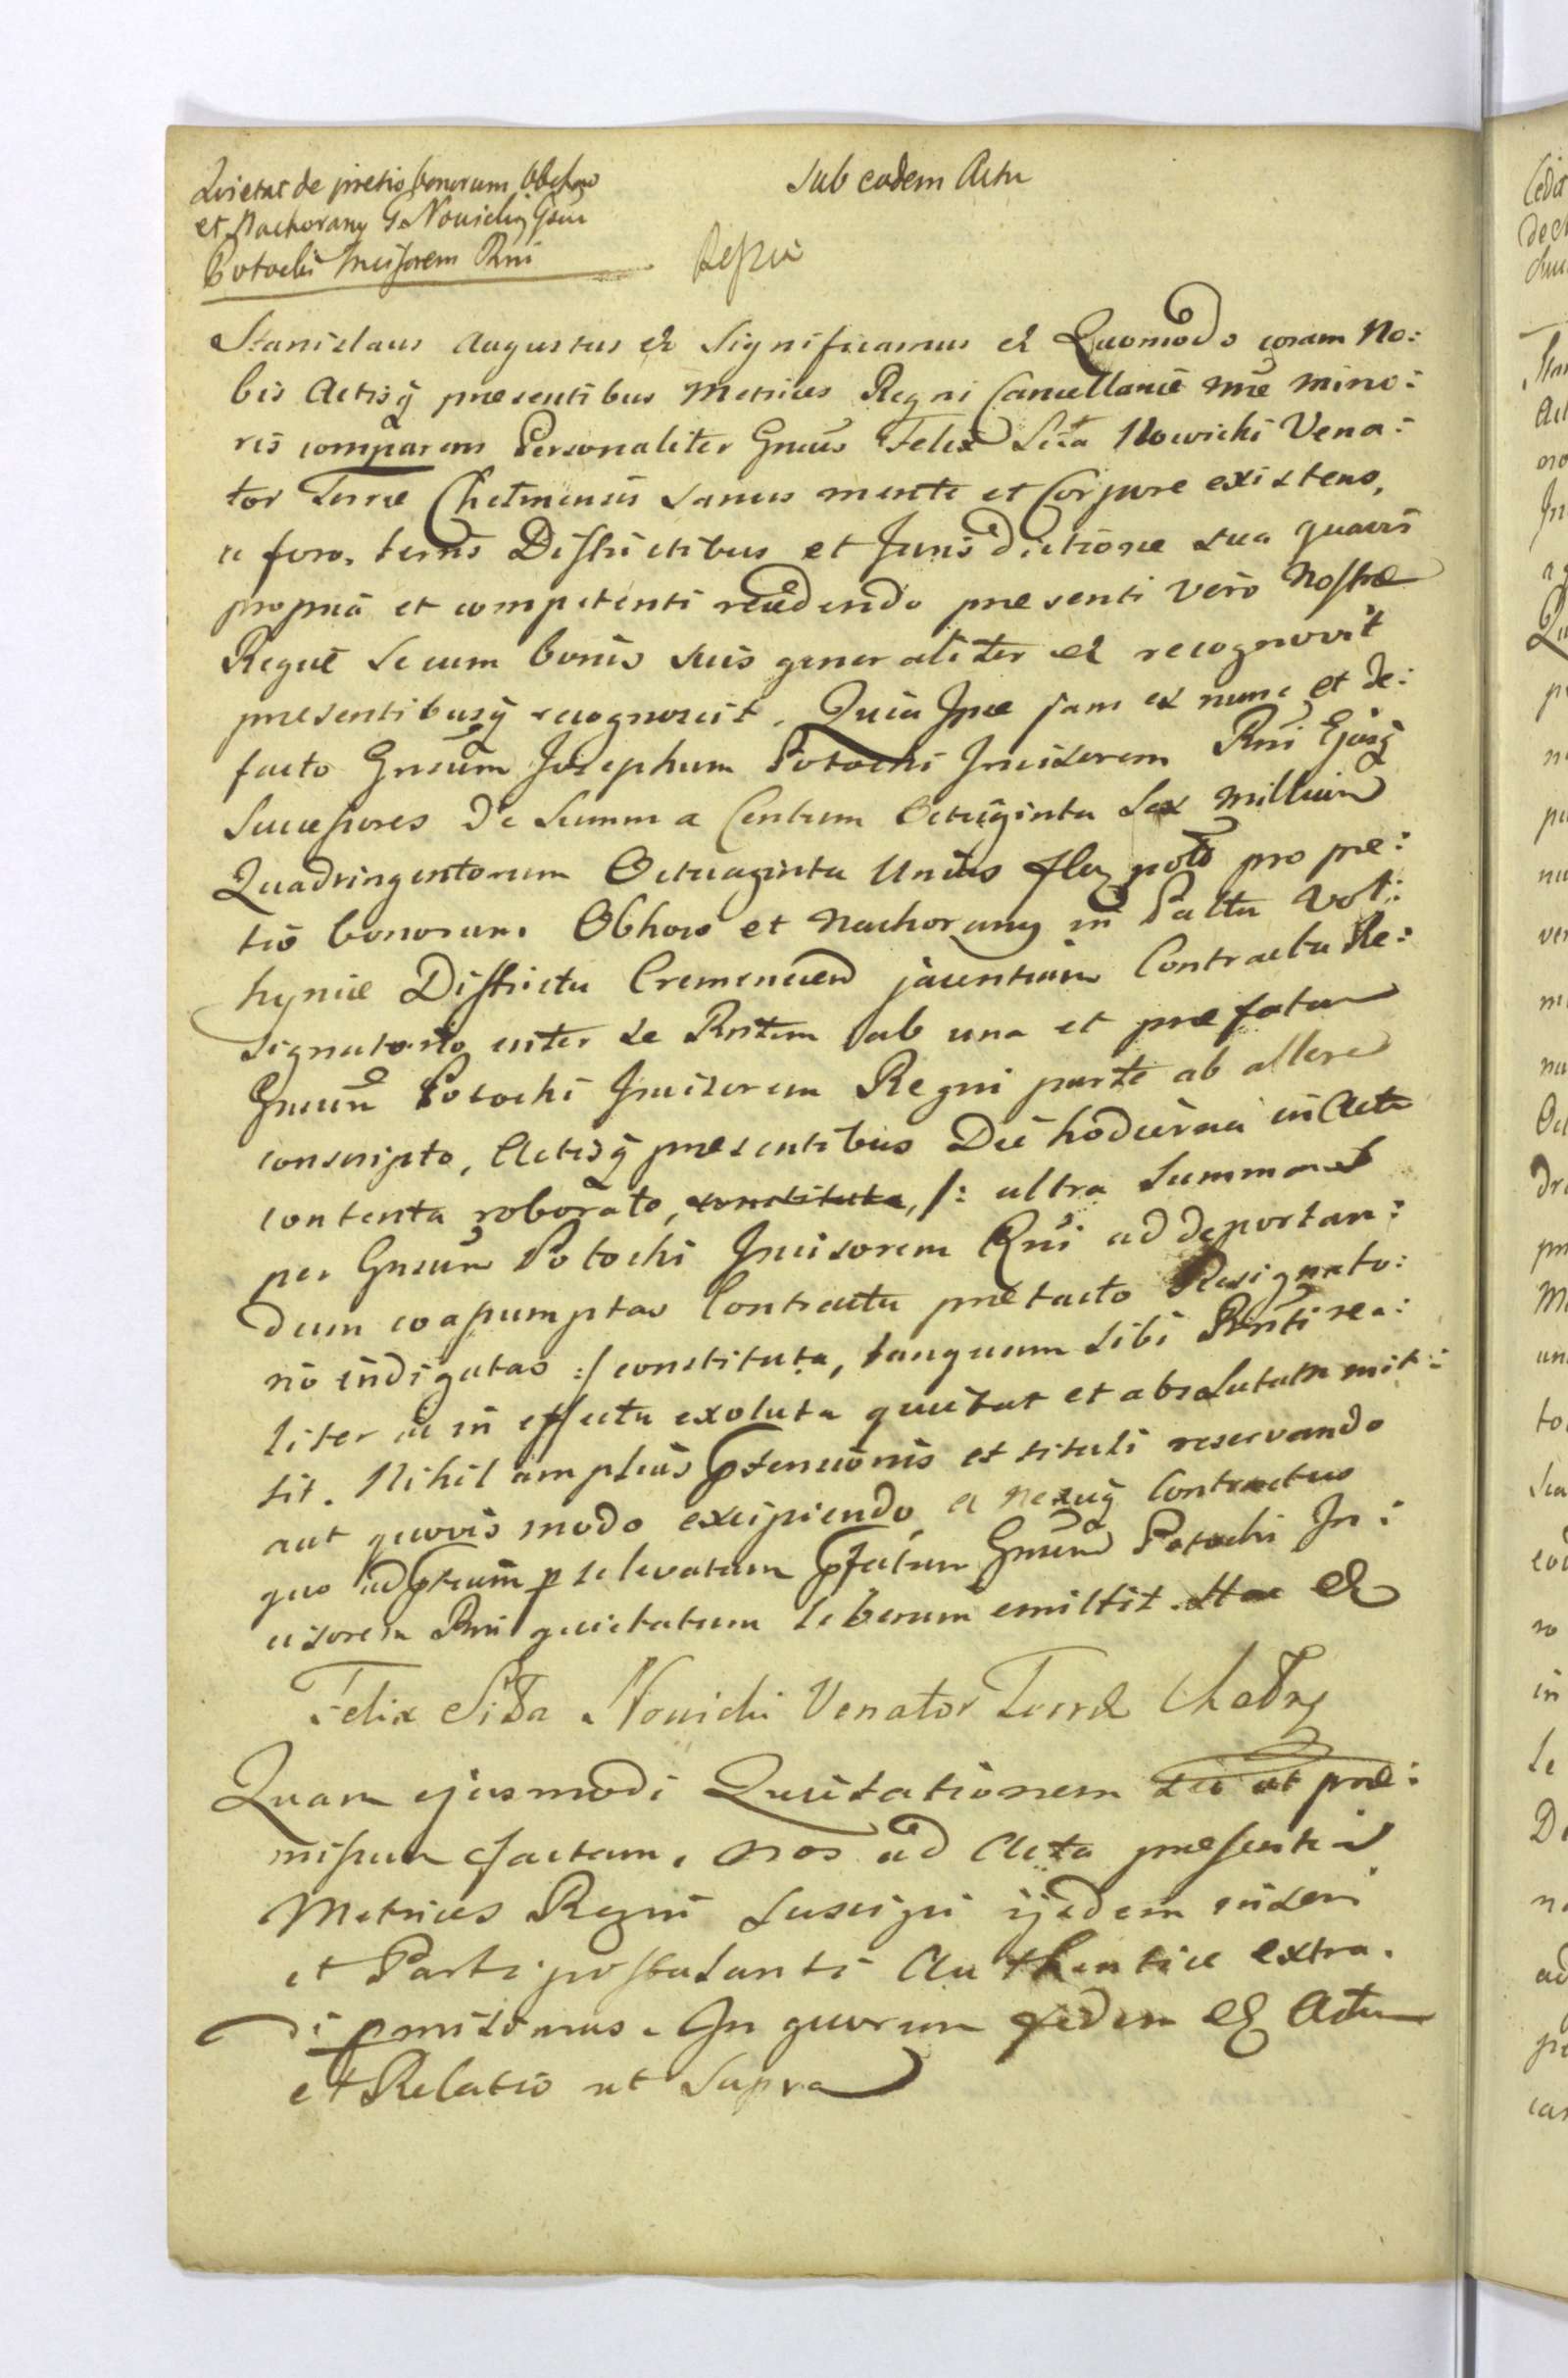 Quietat de pretio bonorum Obchow
et Nachorany G. Nowicki Gsum
Potocki Incisorem Rni
Sub eodem Actu
Stanislaus Augustus &c Significamus &c Quomodo coram No:
bis Actisq presentibus Metrices Regni Cancellariæ nræ mino:
ris comparens Personaliter Gnsus Felix Nowicki Vena:
tor Terræ Chełmensis sanus mente et Corpore existens,
a foro, terris Districtibus et Jurisdictione sua quavis
propria et competenti recedendo præsenti vero Nostræ
Regiæ se cum bonis suis generaliter &c recognovit
presentibusq recognoscit. Quia Ipse jam ex nunc et de:
facto Gnsum Josephum Potocki Incisorem Rni Ejusq
Successores de Summa Centum Octuginta Sex Millium
Quadringentorum Octuaginta Unius flor polo pro pre:
tio bonorum Obhow et Nachorany in Pałtu Vol:
hyniæ Districtu Cremenecen jacentium Contractu Re:
signatorio inter se Rntem ab una et præfatum
Gnsum Potocki Incisorem Regni parte ab altera
conscripto, Actisq presentibus Die hodierna in Acta
contenta roborato, constituta, /: ultra Summas
per Gnsum Potocki Incisorem Rni ad deportan:
dum coassumptas Contractu prætacto Resignato:
rio indigatas :/ constituta, tanquam sibi Rnti rea:
liter ac in effectu exoluta quietat et absolutum mit:
tit. Nihil amplius ptensionis et tituli reservando
aut quovis modo excipiendo, a nexuq Contractus
quo ad ptium p se levatum pfatum Gnsum Potocki In:
cisorem Rni quietatum liberum emittit. Hac &c
Felix Nowicki Venator Terræ
Quam ejusmodi Quietationem sic ut præ:
missum factam, nos ad Acta præsentia
Metrices Regni Suscipi ijsdem inseri
et Parti postulanti Authentice extra.
di pmisimus. In quorum fidem &c Actum
et Relatio ut Supra